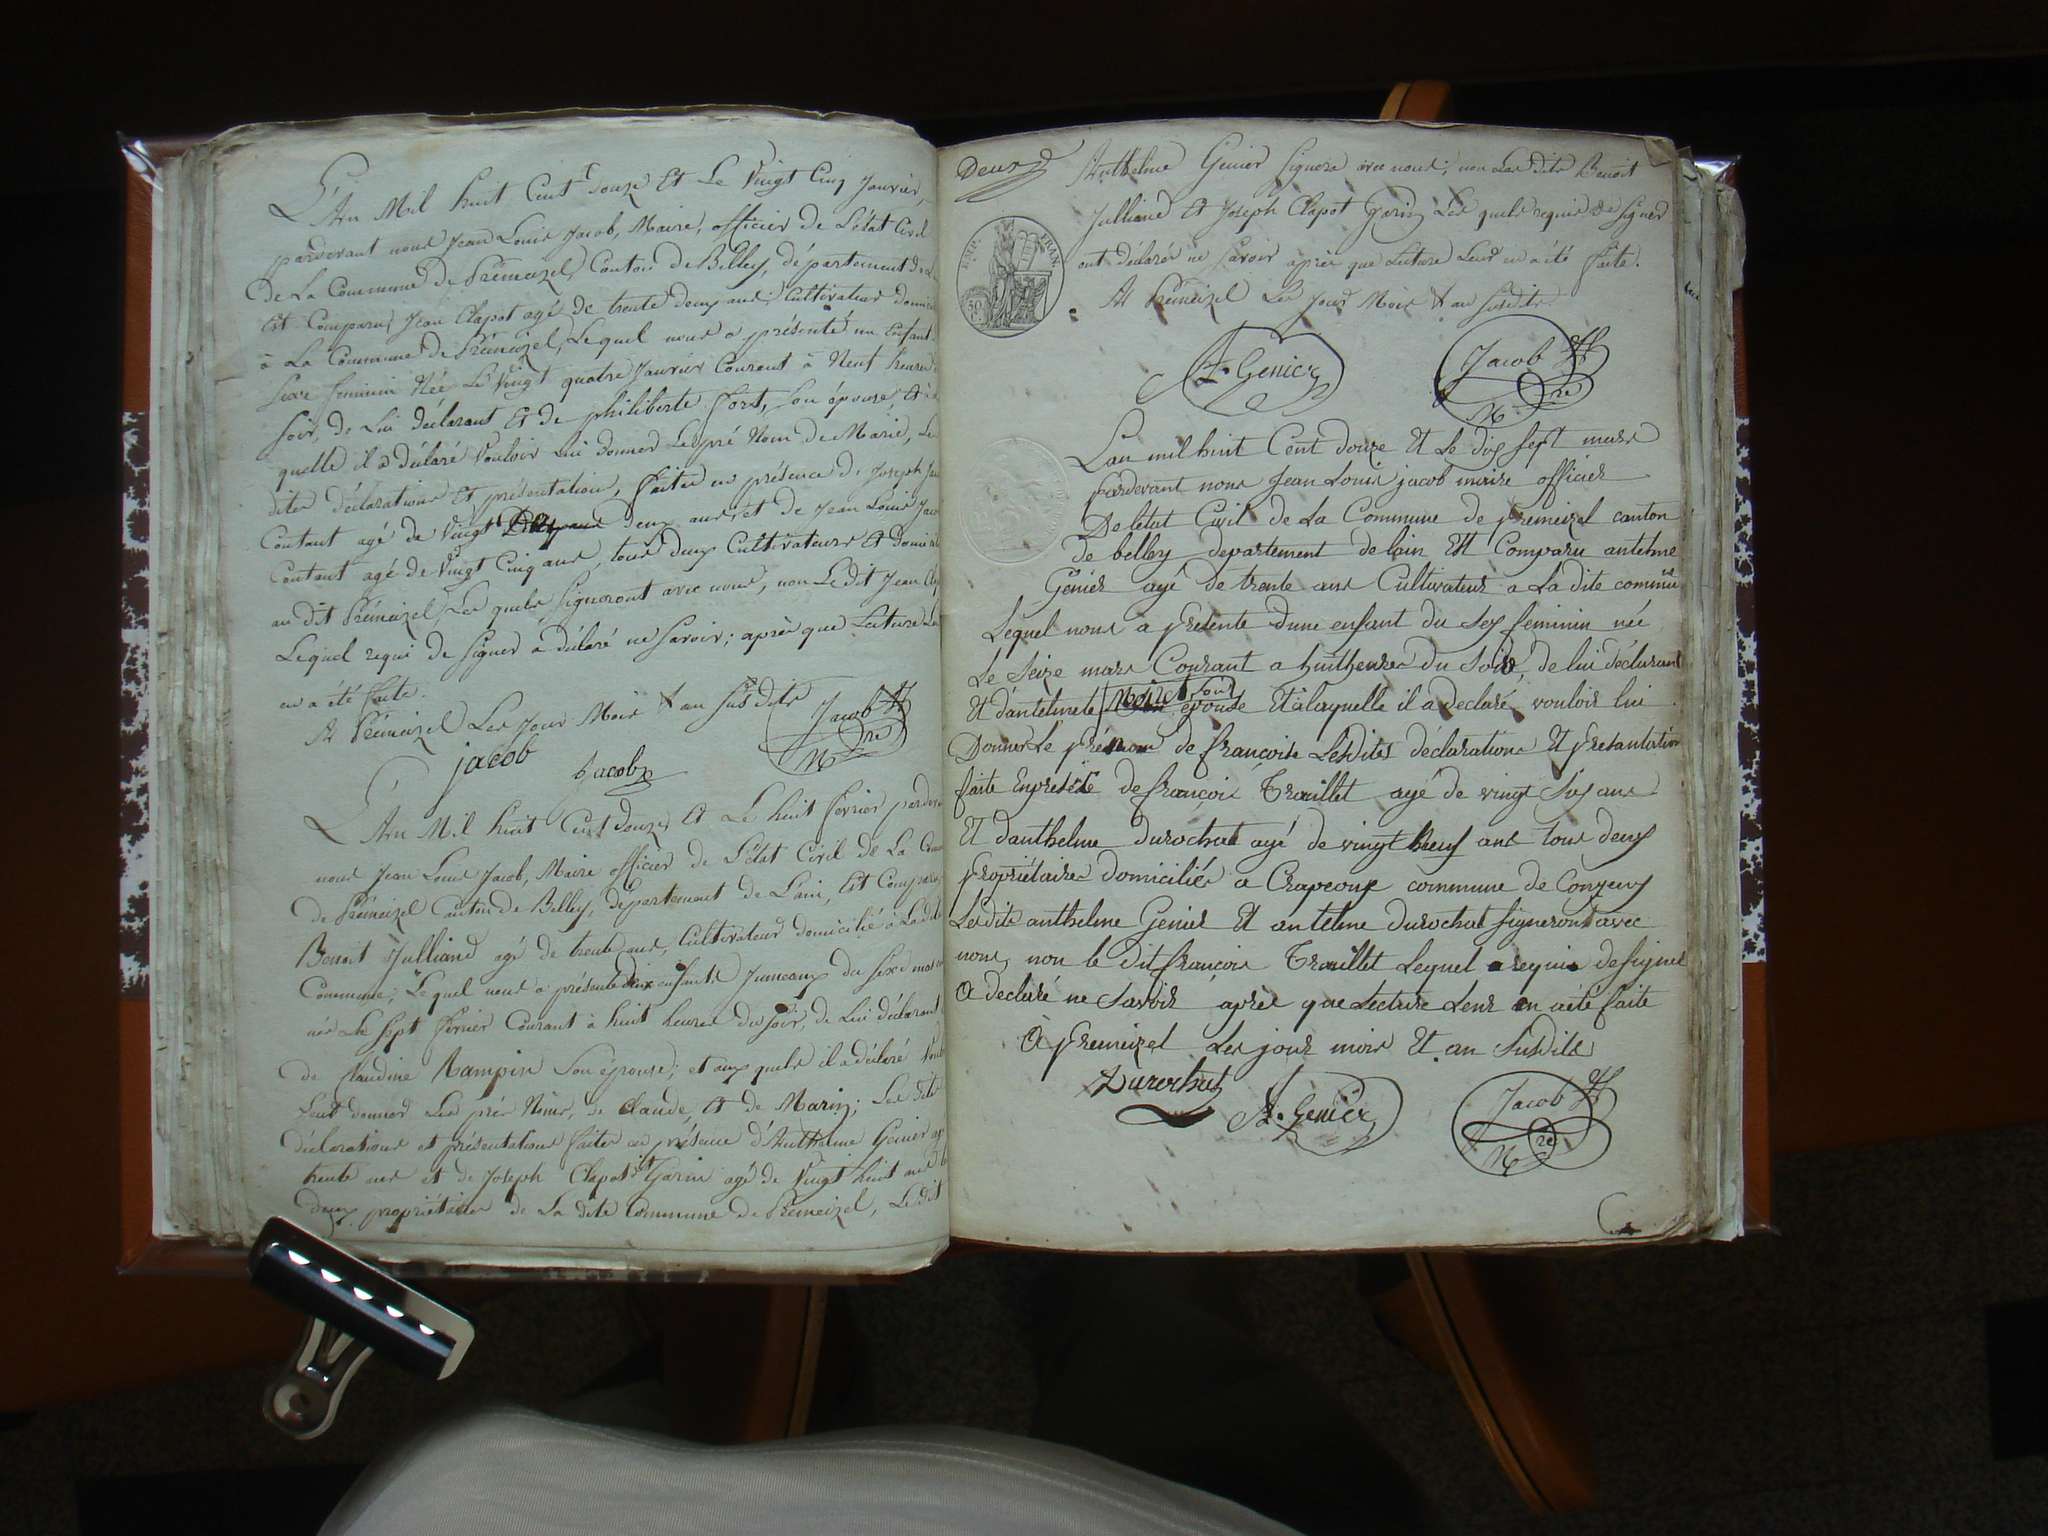 L'An Mil huit Cent douze Et Le Vingt Cinq Janvier,
pardevant nous Jean Louis Jacob, Maire, officier de L'état Civil
de La Commune de Prémeizel, Canton de Belley, département de
Est Comparu, Jean Clapot agé de trente deux ans, Cultivateur
à La Commune de Prémeizel, Lequel nous a présenté un Enfant
Sexe feminin Née Le Vingt quatre Janvier Courant à Neuf heures
soir, de Lui déclarant Et de philiberte fort, son épouse, Et
quelle il a déclaré Vouloir Lui donner Le pré Nom de Marie, Les
dites déclarations Et présentation, faites en présence de Joseph
Contant agé de Vingt deux ans Et de Jean Louis
Contant agé de Vingt Cinq ans, tous deux Cultivateurs Et
au dit Prémeizel, Les quels signeront avec nous, non Le dit Jean
Lequel requis de signer a déclaré ne savoir; après que Lecture
en a été faite.
A Prémeizel Les Jour Mois & an susdits
Jacob
jacob
Jacob
M re
L'An Mil huit Cent douze Et Le huit février
nous Jean Louis Jacob, Maire officier de L'état Civil de La
de Prémeizel Canton de Belley, département de L'ain, Est Comparu
Benoit Julliand agé de trente ans, Cultivateur domicilié à La dite
Commune, Lequel nous a présenté deux enfants Jumeaux du sexe
nés Le sept février Courant à huit heures du soir, de Lui déclarant
de Claudine Rampin son épouse; et aux quels il a déclaré
Leur donner Les prés Noms, de Claude, et de Marin; Les dites
déclarations et présentations faites en présence d'Anthelme Genier
trente ans et de Joseph Clapot dit Garin agé de Vingt huit ans
deux propriétaires de La dite Commune de Prémeizel, Le dit
Deux
Anthelme Genier signera avec nous, non Les dits Benoit
Julliand Et Joseph Clapot Garin Les quels requis de signer
ont déclaré ne savoir après que Lecture Leur en a été faite.
A Prémeizel Les Jour Mois & an susdits
EMP. FRAN.
50 C.
A. Genier
Jacob
M re
Lan mil huit Cent douze Et Le dix sept mars
pardevant nous Jean Louis jacob maire officier
De letat Civil de La Commune de premeizel canton
de belley departement de lain Est Comparu antelme
Genier agé de trente ans Cultivateur a La dite commune
Lequel nous a presente dune enfant du sex feminin née
Le Seize mars Courant a huit heures du soir, de lui déclarant
Et d'antelmete epouse Et a laquelle il a declaré vouloir lui
Donner Le prénom de françoise Lesdites déclarations Et presantation
faite en presece de françois Trouillet agé de vingt six ans
Et danthelme durochat agé de vingt neuf ans tous deux
propriétaires domiciliés a Crapeoux commune de Conzeux
Lesdits anthelme Genier Et antelme durochat signeront avec
nous, non le dit françois Trouillet Lequel a requis de signer
a declaré ne savoir après que Lecture Leur en a été faite
à premeizel Les jour mois Et an susdits
Durochat
A. Genier
Jacob
M re